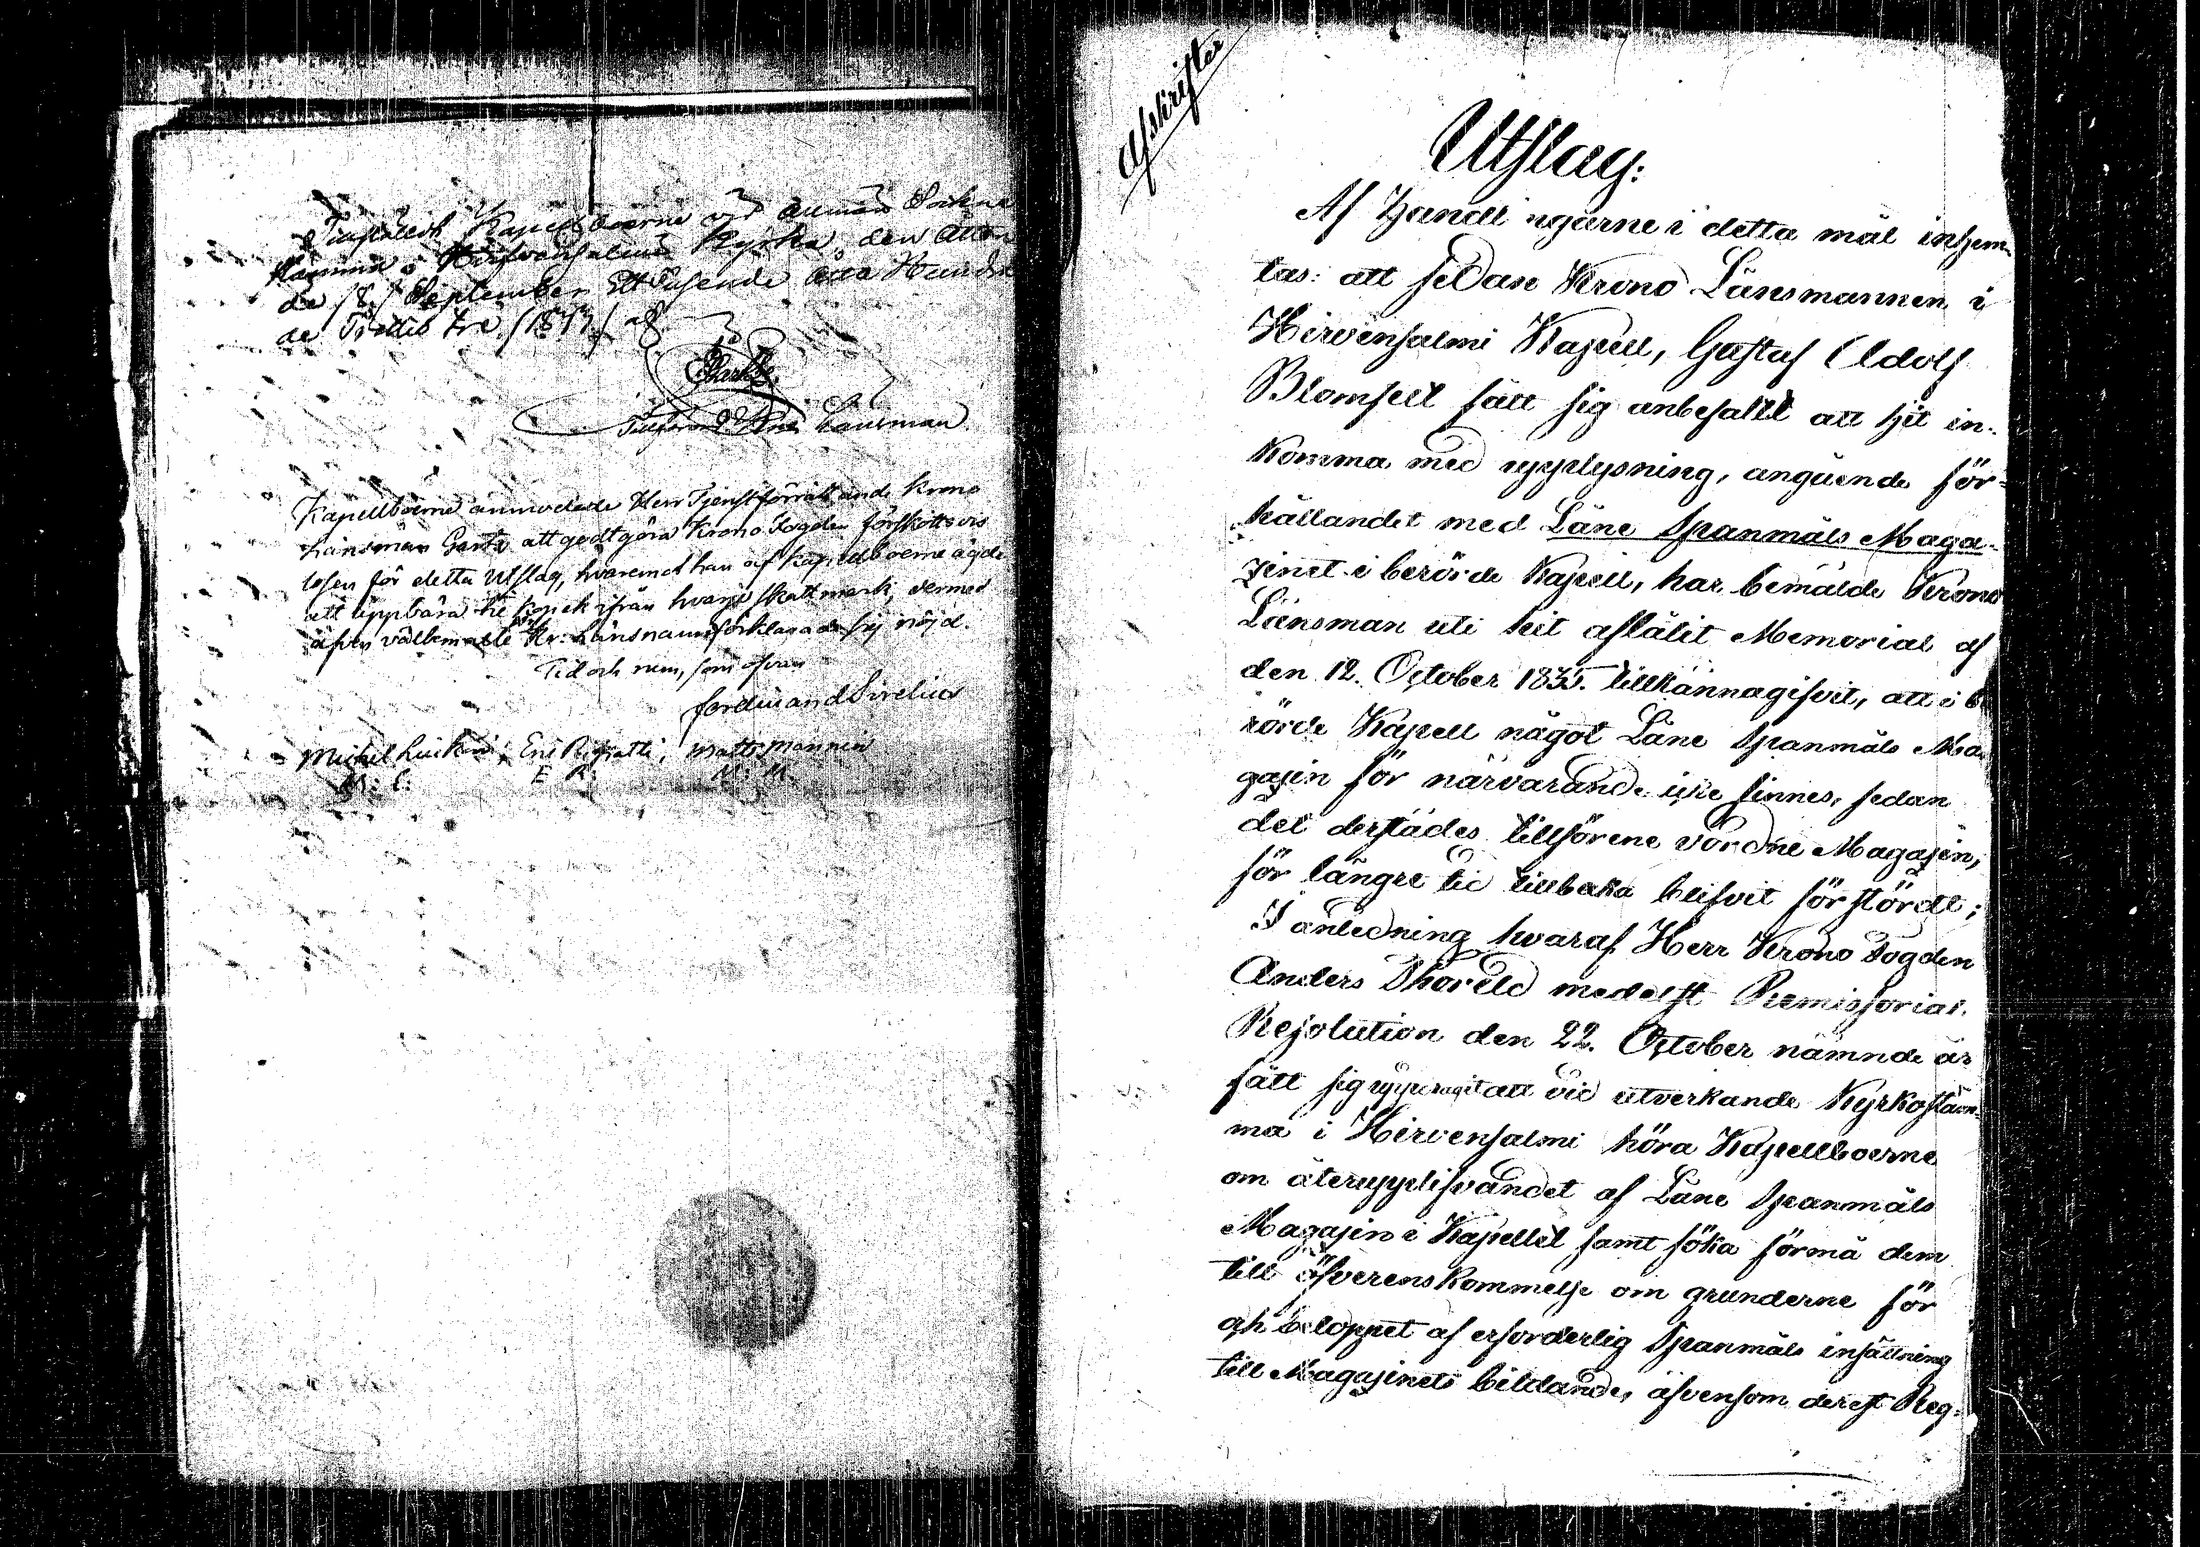 Kapellboerne vid allmän Sockne
stämma i Hirfvensalmi Kyrka, den åtton
de /8/ September Ett Tusende åtta Hundra
de Trettio tre /1833/ af
Gartz
Tillförordnad Länsman
Kapellboerne anmodade Herr Tjenstförrättande Krono
Länsman Gartz att godtgöra Krono Fogden förskottsvis
lösen för detta Utslag, hvaremot han af Kapellboerne ägde
att uppbära tie kopek ifrån hvarje skattmark, dermed
äfven välbemälte Hr: Länsman förklarade sig nöjd.
Tid och rum, som ofvan
Ferdinand Sirelius
Michel Luikin, Eric Ripatti, Matts Manninen
M: L: E R: M: M.
Afskrifter
Utslag:
Af Handlingarne i detta mål inhem-
tas: att sedan Krono Länsmannen i
Hirvensalmi Kapell, Gustaf Adolf
Blomfelt fått sig anbefallt att hit in-
komma med upplysning, angående för-
hållandet med Låne Spanmåls Maga-
zinet i berörde Kapell, har bemälde Krono
Länsman uti hit aflåtit Memorial af
den 12. October 1835. tillkännagifvit, att i be
rörde Kapell något Låne Spanmåls Ma
gazin för närvarande icke finnes, sedan
det derstädes tillförene vordne Magazin,
för längre tid tillbaka blifvit förstördt;
I anledning hvaraf Herr Krono Fogden
Anders Thoreld medelst Remissorial
Resolution den 22. October nämnde år
fått sig uppdragit att vid utverkande Kyrkostäm-
ma i Hirvensalmi höra Kapellboerne
om återupplifvandet af Låne Spanmåls
Magazin i Kapellet samt söka förmå dem
till öfverenskommelse om grunderne för
och beloppet af erforderlig Spanmåls insättning
till Magazinets bildande, äfvensom derest Reg-